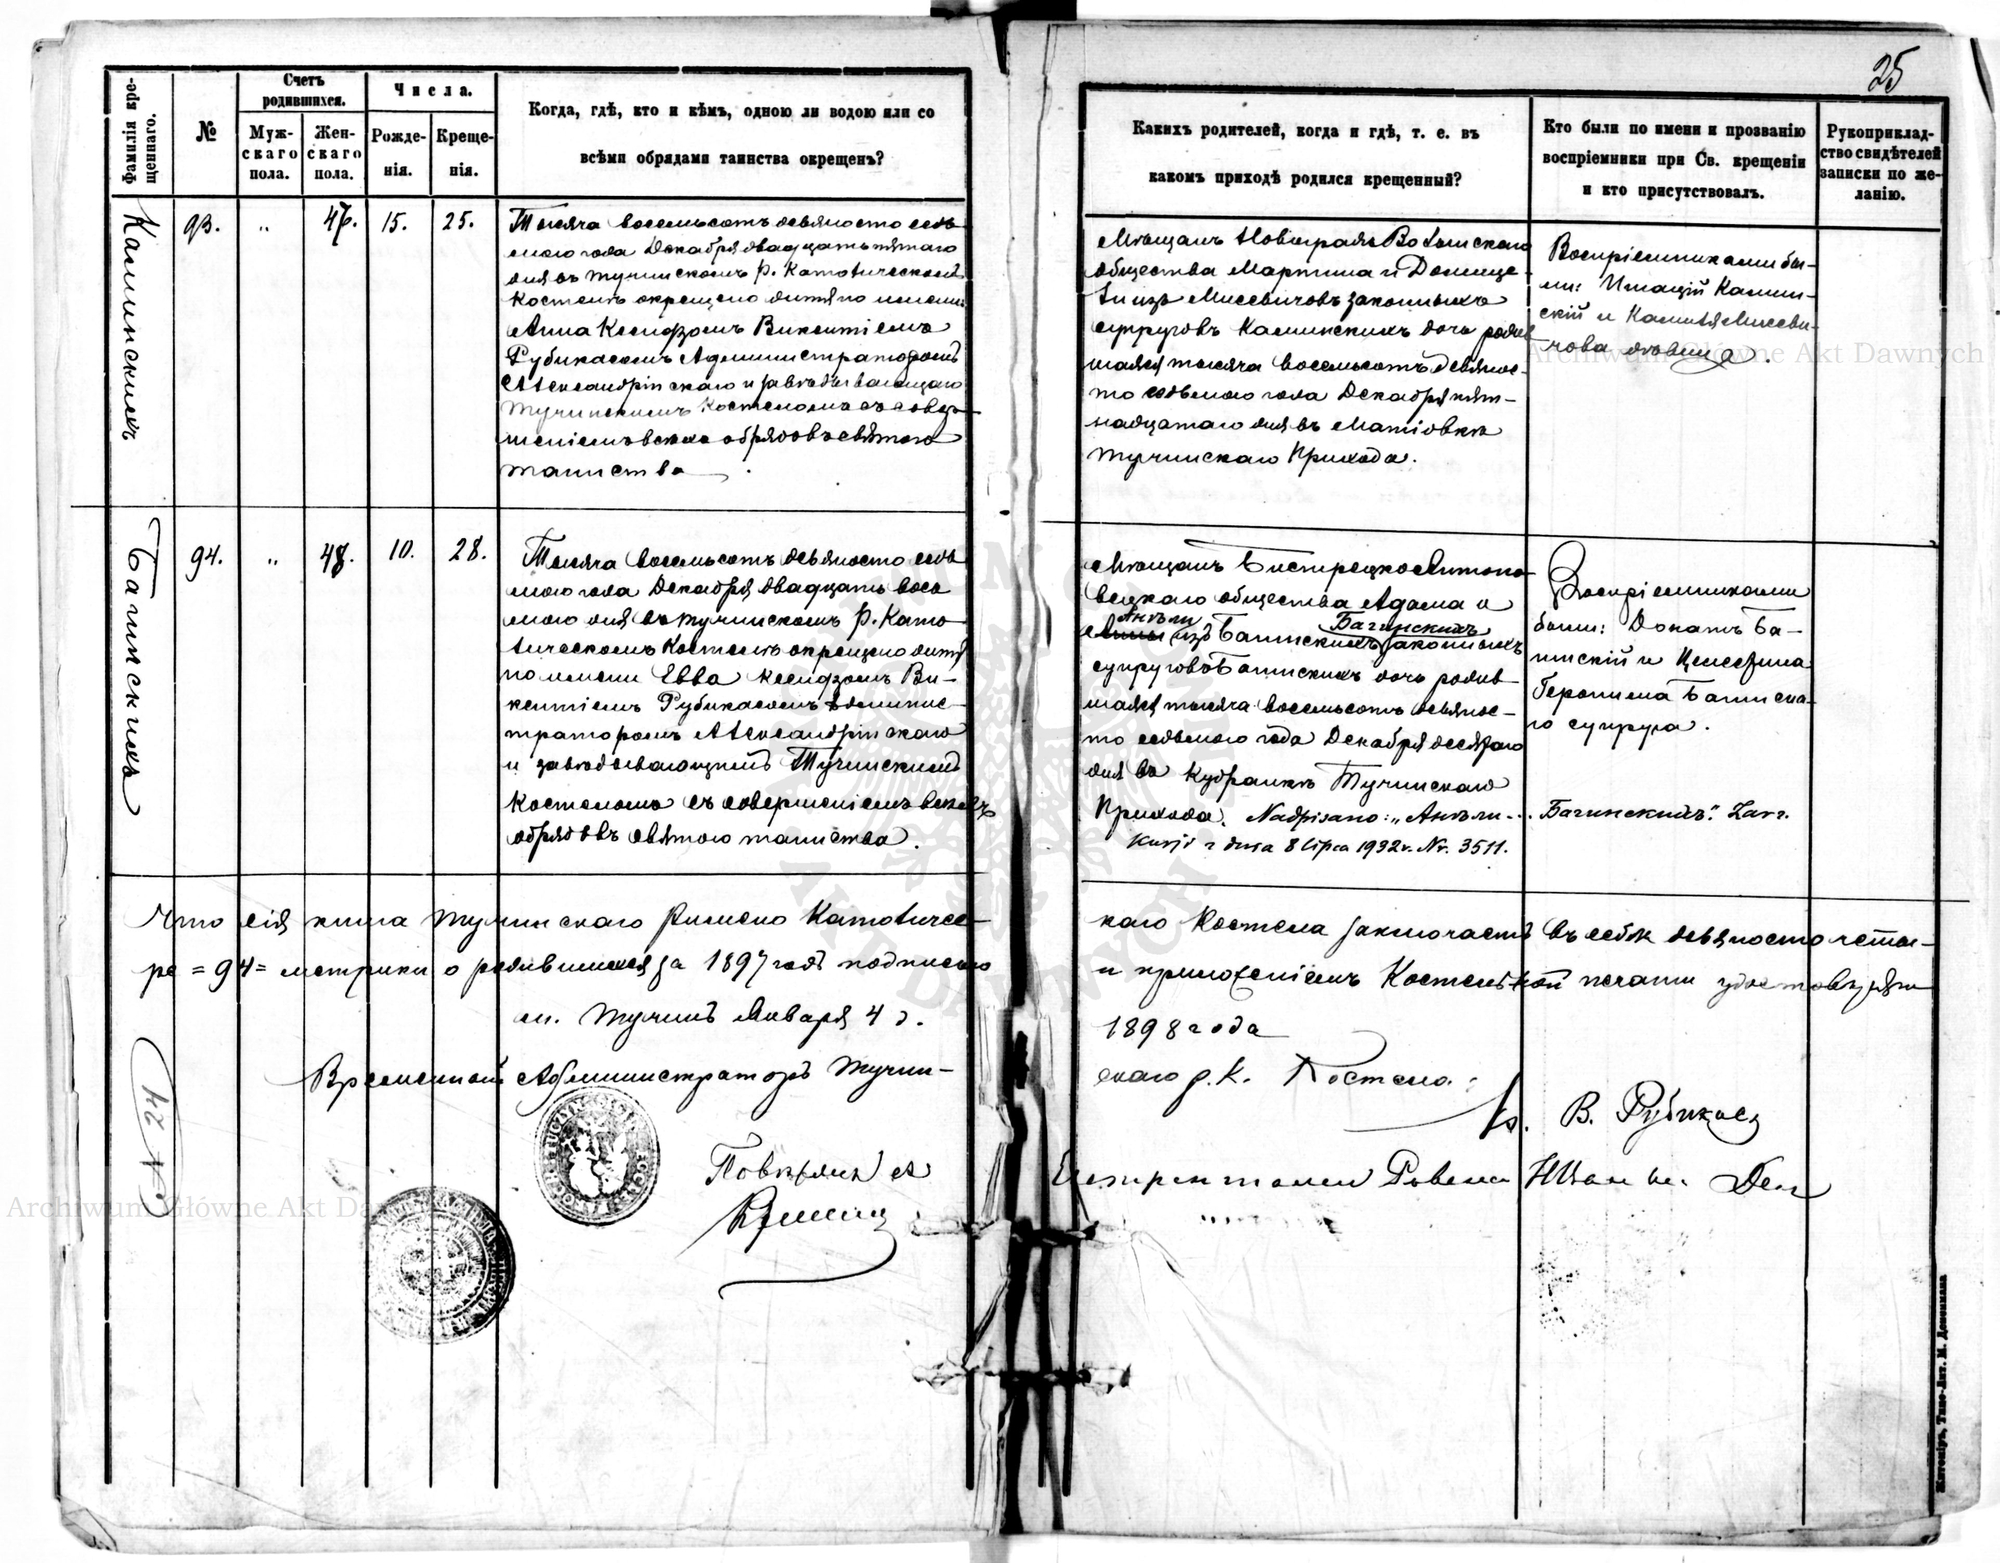 25
Фамилія кре-
щеннаго.
№
Счетъ
родившихся.
Муж-
скаго
пола.
Жен-
скаго
пола.
Числа.
Рожде-
нія.
Креще-
нія.
Когда, гдѣ, кто и кѣмъ, одною ли водою или со
всѣми обрядами таинства окрещенъ?
Какихъ родителей, когда и гдѣ, т. е. въ
какомъ приходѣ родился крещенный?
Кто были по имени и прозванію
воспріемники при Св. крещеніи
и кто присутствовалъ.
Рукоприклад-
ство свидѣтелей
записки по же-
ланію.
Калинскихъ
93.
„
47.
15.
25.
Тысяча восемьсотъ девяносто седь
мого года Декабря двадцать пятаго
дня въ Тучинскомъ Р. Католическомъ
Костелѣ окрещено дитя по имени
Анна Ксендзомъ Викентіемъ
Рубикасомъ Администраторомъ
Александрійскаго и завѣдывающаго
Тучинскимъ Костеломъ съ совер-
шеніемъ всѣхъ обрядовъ святого
таинства.
Мѣщанъ Новоградъ Волынскаго
общества Мартина и Домице-
ли изъ Мисевичовъ законныхъ
супруговъ Калинскихъ дочь родив
шаяся тысяча восемьсотъ девянос-
то седьмого года Декабря пят-
надцатаго дня въ Матіовкѣ
Тучинскаго Прихода.
Воспріемниками бы-
ли: Игнацій Калин-
скій и Камиля Мисеви-
чова дѣвица.
Багинскихъ
94.
„
48.
10.
28.
Тысяча восемьсотъ девяносто седь
мого года Декабря двадцать вось
мого дня въ Тучинскомъ Р. Като
лическомъ Костелѣ окрещено дитя
по имени Евва Ксендзомъ Ви-
кентіемъ Рубикасомъ Админис-
траторомъ Александрійскаго
и завѣдывающимъ Тучинскимъ
Костеломъ съ совершеніемъ всѣхъ
обрядовъ святого таинства.
Мѣщанъ Бистрецко Антоно-
вецкаго общества Адама и
Анѣли Багинскихъ
изъ Багинскихъ законныхъ
супруговъ Багинскихъ дочь родив
шаяся тысяча восемьсотъ девянос-
то седьмого года Декабря десятаго
дня въ Кудранкѣ Тучинскаго
Прихода. Nadpisano: „Анѣли -
Багинскихъ". Zarz.
Kurji z dnia 8 lipca 1932 r. Nr. 3511.
Воспріемниками
были: Донатъ Ба-
гинскій и Целестина
Геронима Багинска-
го супруга.
Что сія книга Тучинскаго Римско Католичес-
каго Костела заключаетъ въ себѣ девяносто четы-
ре = 94 = метрики о родившихся за 1897 годъ подписью
и приложеніемъ Костельной печати удостовѣряю
м. Тучинъ Января 4 д.
1898 года
Временный Администраторъ Тучин-
скаго р. К. Костела
В. Рубикасъ
Archiwum Główne Akt Dawnych
Archiwum Główne Akt Dawnych
Житоміръ, Типо-Лит. М. Дененмана